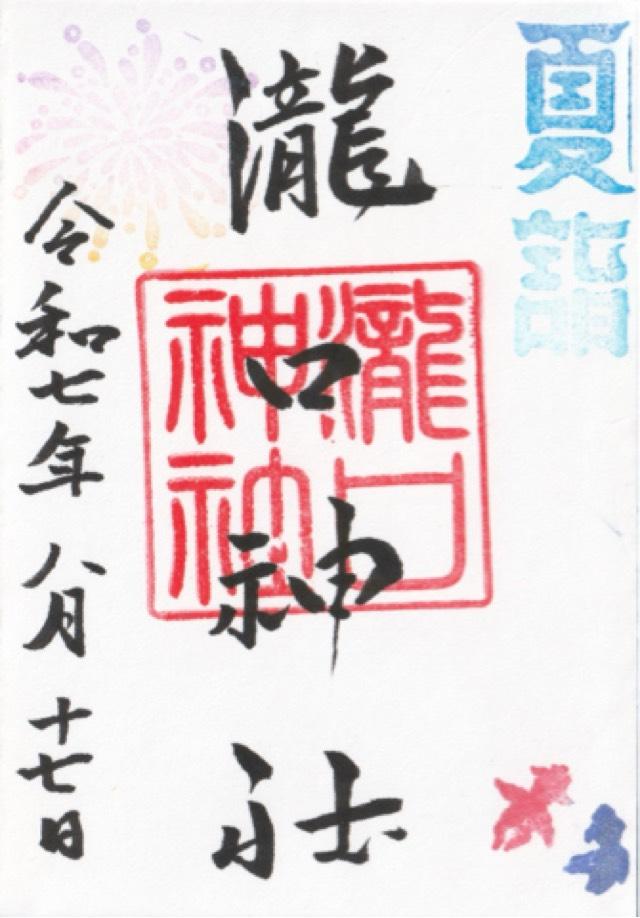 夏詣
瀧口神社
瀧口
神社
令和七年八月十七日